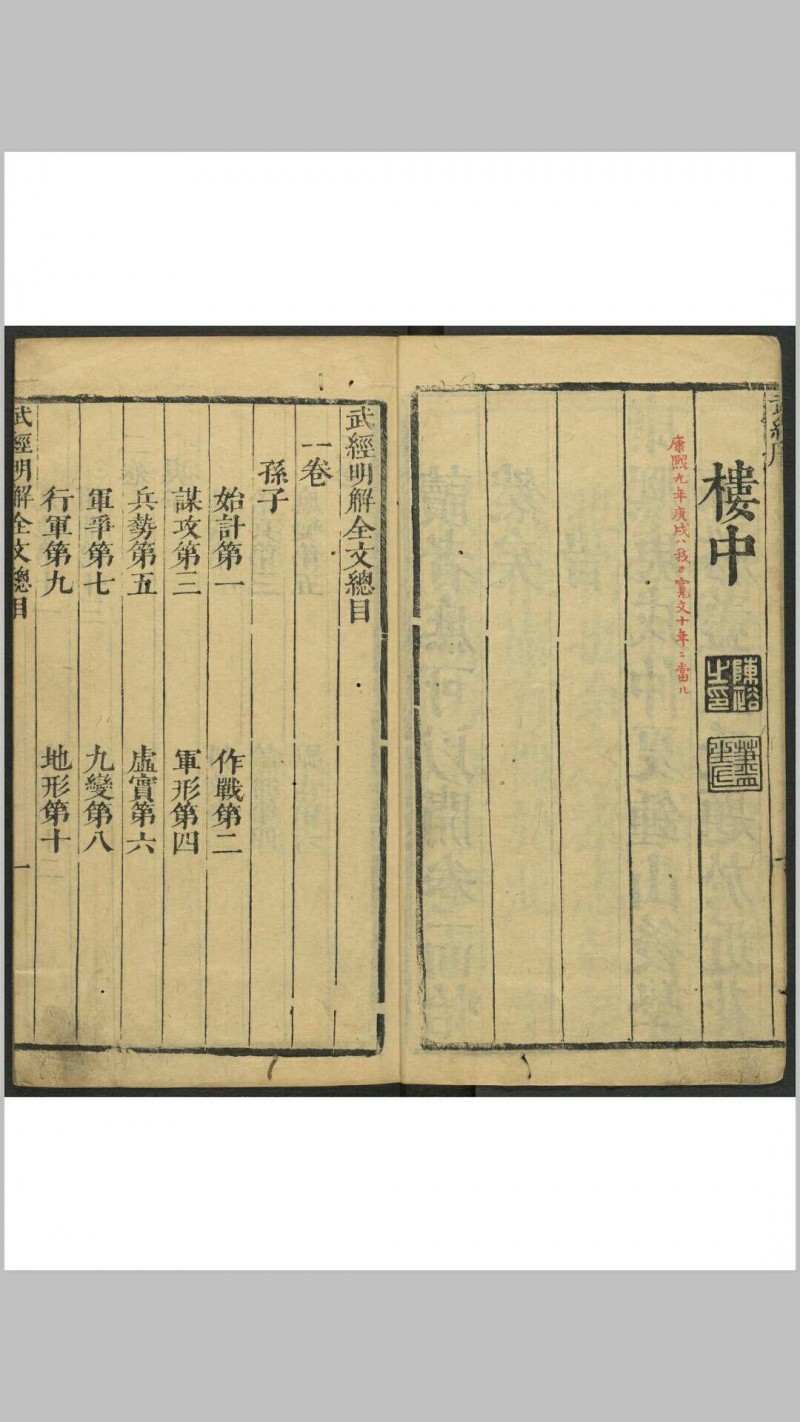 武經序
樓中
陳裕之印
康熙九年庚戌ハ我カ寬文十年ニ當ル
武經明解全文總目
一卷
孫子
始計第一
作戰第二
謀攻第三
軍形第四
兵勢第五
虛實第六
軍爭第七
九變第八
行軍第九
地形第十
武經明解全文總目
一